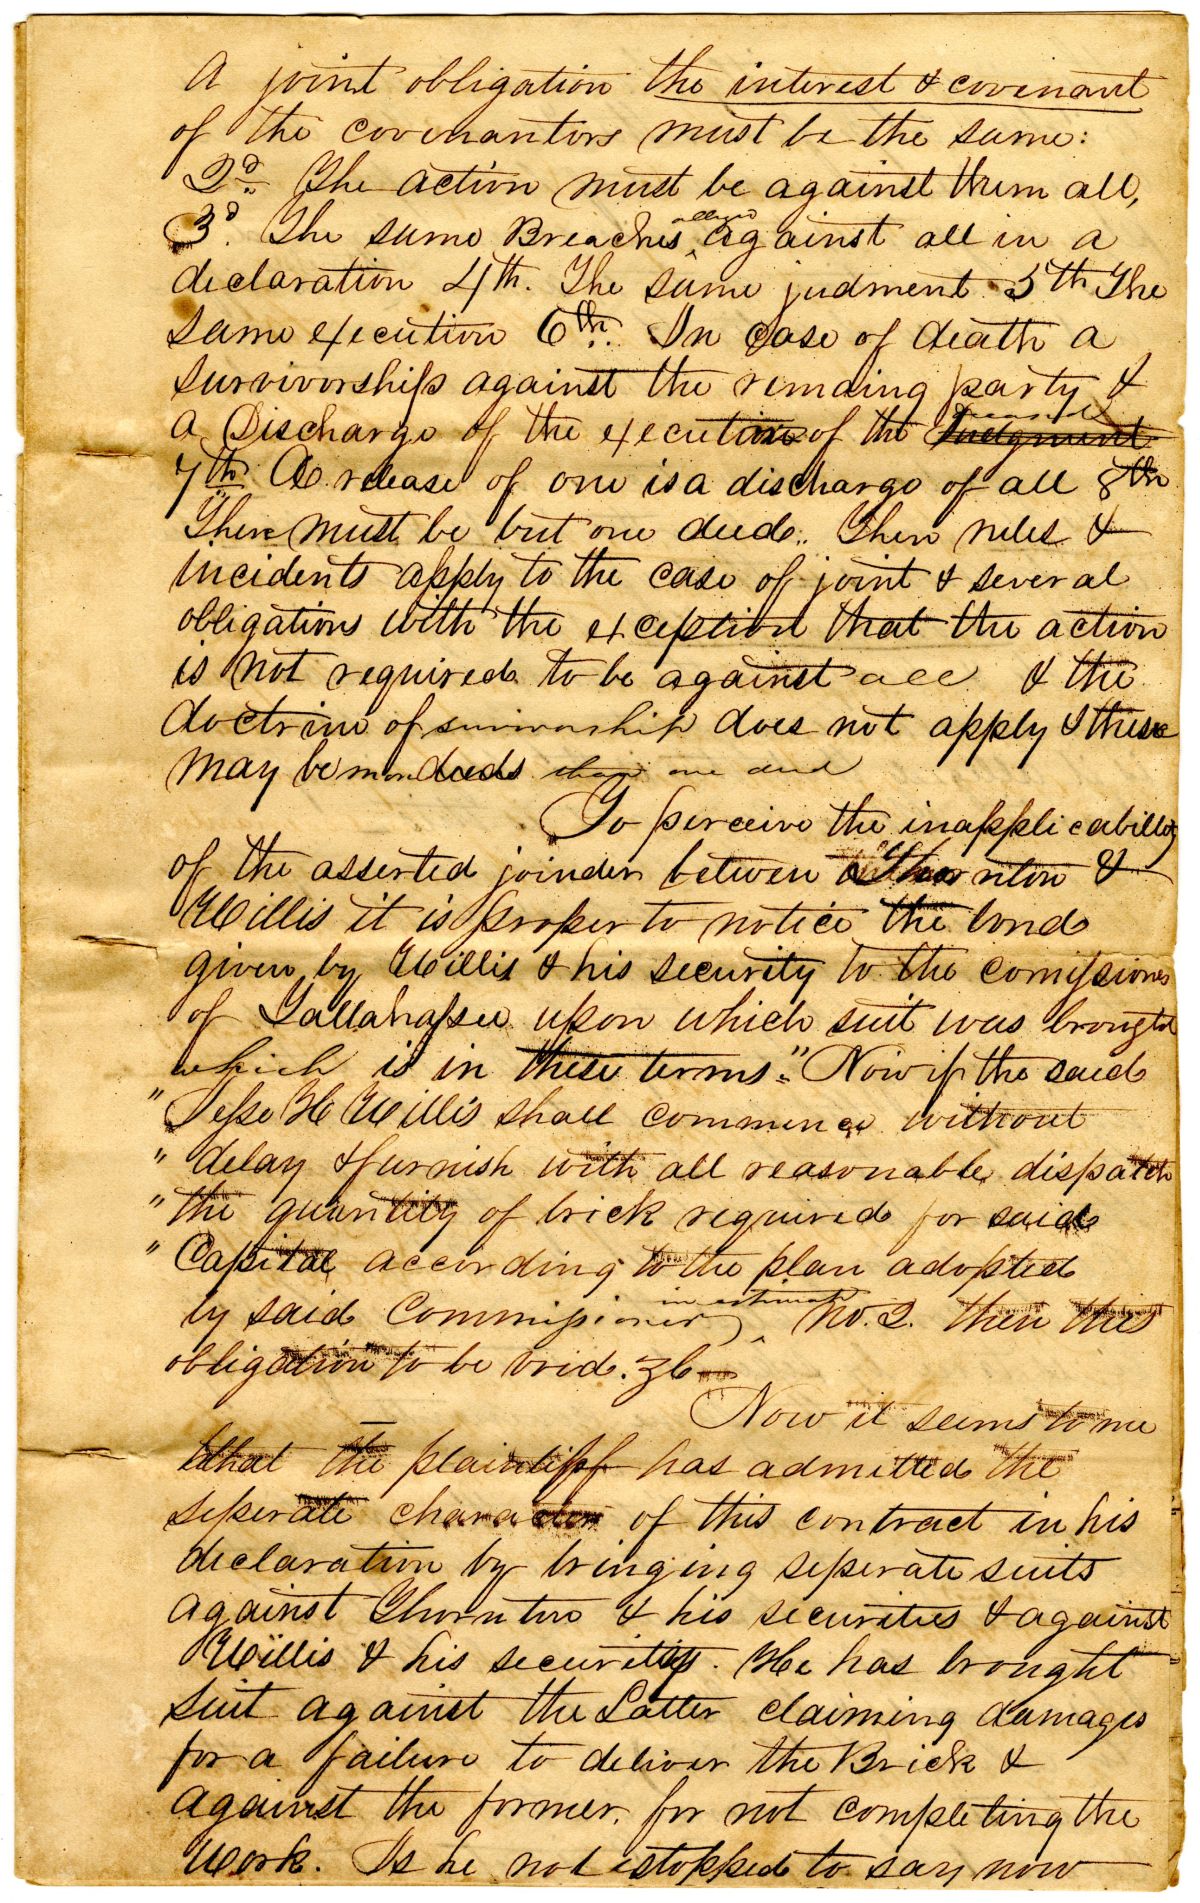 A joint obligation the interest & covenant
of the covenantors must be the same:
2d. The action must be against them all,
3d. The same Breaches alleged against all in a
declaration 4th. The same judment 5th The
same execution 6th. In case of death a
survivorship against the remaing party &
a Discharge of the execution of the Judgment
7th A release of one is a discharge of all 8th
There must be but one deed. These rules &
incidents apply to the case of joint & several
obligations with the exception that the action
is not required to be against all & the
doctrine of survivorship does not apply & there
may be more deeds than one deed
To perceive the inapplicabillity
of the asserted joinder between Thornton &
Willis it is proper to notice the bond
given by Willis & his security to the comissioners
of Tallahassee upon which suit was brought
which is in these terms." Now if the said
" Jesse H Willis shall commence without
" delay & furnish with all reasonable dispatch
" the quantity of brick required for said
" Capital according to the plan adopted
by said Commissioners, in estimate No. 2. then this
obligation to be void. 36
Now it seems to me
that the plaintiff has admitted the
seperate character of this contract in his
declaration by bringing seperate suits
against Thornton & his securities & against
Willis & his security. He has brought
suit against the Latter claiming damages
for a failure to deliver the Brick &
against the former for not completing the
Work. Is he not estopped to say now